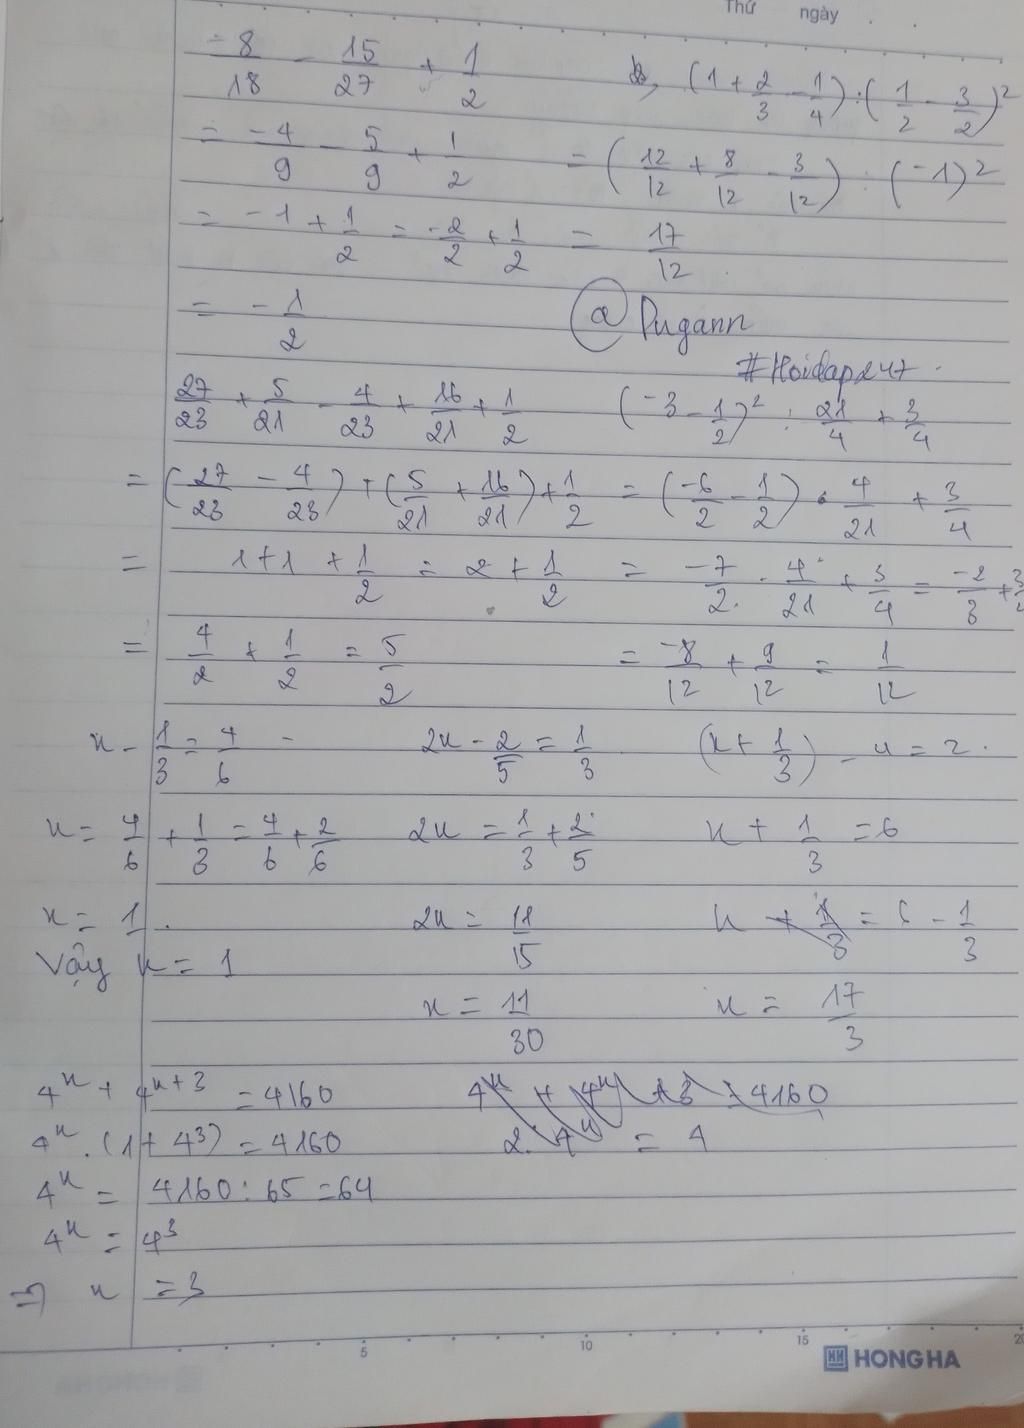 Thứ ngày . .
-8/18 - 15/27 + 1/2
= -4/9 - 5/9 + 1/2
= -1 + 1/2 = -2/2 + 1/2
= -1/2
b, (1 + 2/3 - 1/4) : (1/2 - 3/2)²
= (12/12 + 8/12 - 3/12) : (-1)²
= 17/12
@Pugann
#Hoidap247
27/23 + 5/21 - 4/23 + 16/21 + 1/2
= (27/23 - 4/23) + (5/21 + 16/21) + 1/2
= 1+1 + 1/2 = 2 + 1/2
= 4/2 + 1/2 = 5/2
(-3 - 1/2)² : 21/4 + 3/4
= (-6/2 - 1/2) . 4/21 + 3/4
= -7/2 . 4/21 + 3/4 = -2/3 + 3/4
= -8/12 + 9/12 = 1/12
x - 1/3 = 4/6
x = 4/6 + 1/3 = 4/6 + 2/6
x = 1.
Vậy x = 1
2x - 2/5 = 1/3
2x = 1/3 + 2/5
2x = 11/15
x = 11/30
(x + 1/3) - 4 = 2.
x + 1/3 = 6
x = 6 - 1/3
x = 17/3
4ˣ + 4ˣ⁺³ = 4160
4ˣ . (1 + 4³) = 4160
4ˣ = 4160 : 65 = 64
4ˣ = 4³
=> x = 3
5 10 15 20
HONG HA